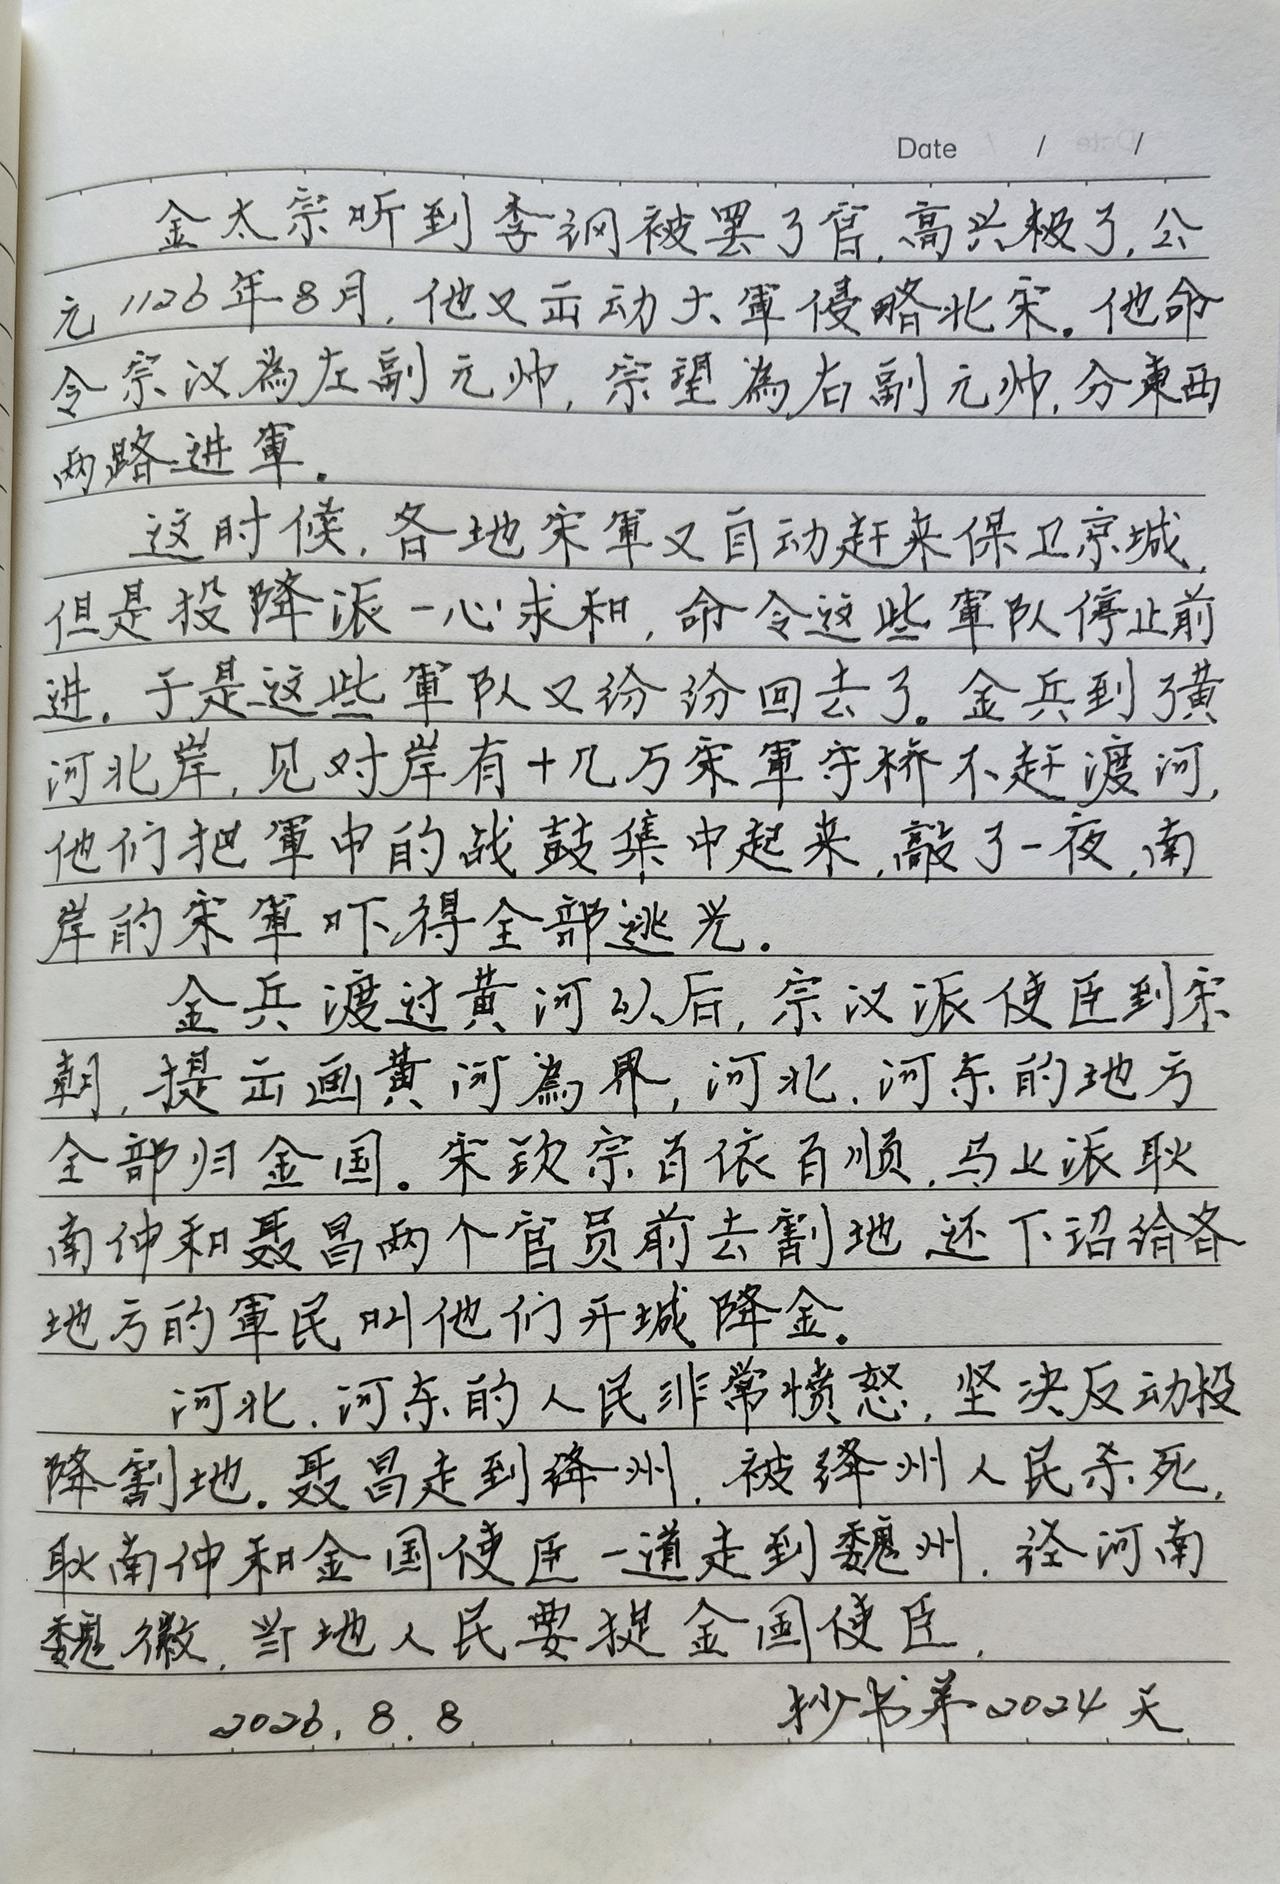 Date / /
金太宗听到李讽被罢了官,高兴极了,公
元1126年8月,他又出动大軍侵略北宋。他命
令宗汉為左副元帅,宗望為右副元帅,分東西
两路进軍。
这时候,各地宋軍又自动赶来保卫京城,
但是投降派一心求和,命令这些軍队停止前
进。于是这些軍队又纷纷回去了。金兵到了黄
河北岸,见对岸有十几万宋軍守桥不赶渡河,
他们把軍中的战鼓集中起来,敲了一夜,南
岸的宋軍吓得全部逃光。
金兵渡过黄河以后,宗汉派使臣到宋
朝,提出画黄河為界,河北、河东的地方
全部归金国。宋钦宗百依百顺,马上派耿
南仲和聂昌两个官员前去割地 还下诏给各
地方的軍民叫他们开城降金。
河北、河东的人民非常愤怒,坚决反动投
降割地。聂昌走到绛州,被绛州人民杀死,
耿南仲和金国使臣一道走到魏州,径河南
魏徽,当地人民要捉金国使臣,
2026.8.8 抄书第2024天